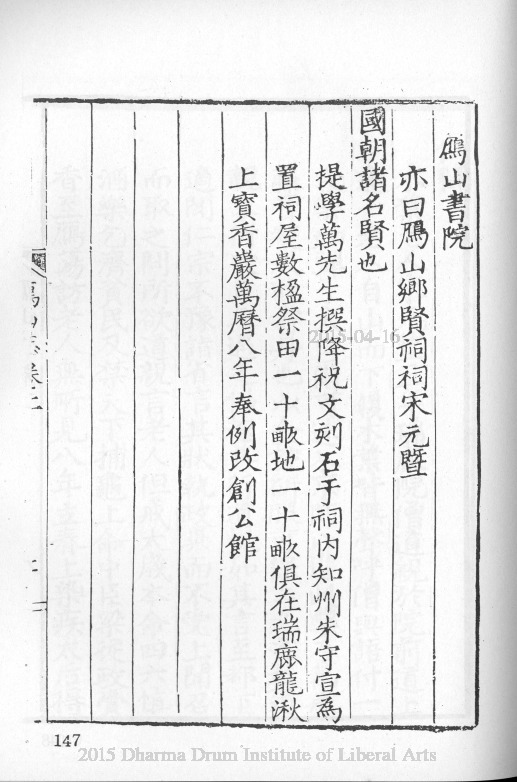 鴈山書院
亦曰鴈山鄉賢祠祠宋元暨
國朝諸名賢也
提學萬先生撰降祝文刻石于祠内知州朱守宣爲
置祠屋數楹祭田一十畝地一十畝俱在瑞鹿龍湫
上寶香巖萬曆八年奉例改創公館
卷二
147
2015-04-16
2015 Dharma Drum Institute of Liberal Arts